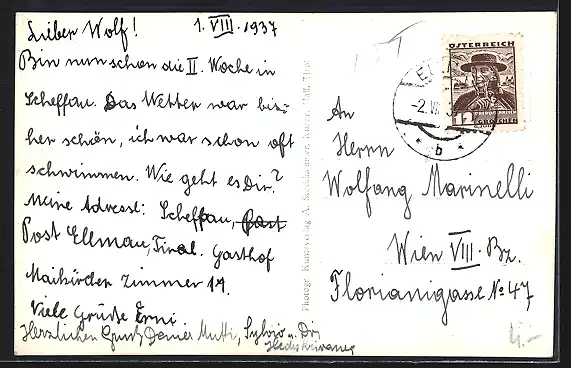 1. VIII. 1937
Lieber Wolf!
Bin nun schon die II. Woche in
Scheffau. Das Wetter war bis-
her schön, ich war schon oft
schwimmen. Wie geht es Dir?
Meine Adresse: Scheffau, Post
Post Ellmau, Tirol. Gasthof
Maikircher Zimmer 14.
Viele Grüße Erni
Herzlichen Gruß Deiner Mutti, Sylvio u. Dir
Photogr. Kunstverlag A. Stockhammer, Hall, Tirol
ÖSTERREICH
12
GROSCHEN
-2. VIII. 3
* b *
An
Herrn
Wolfgang Marinelli
Wien VIII. Bz.
Florianigasse No 47